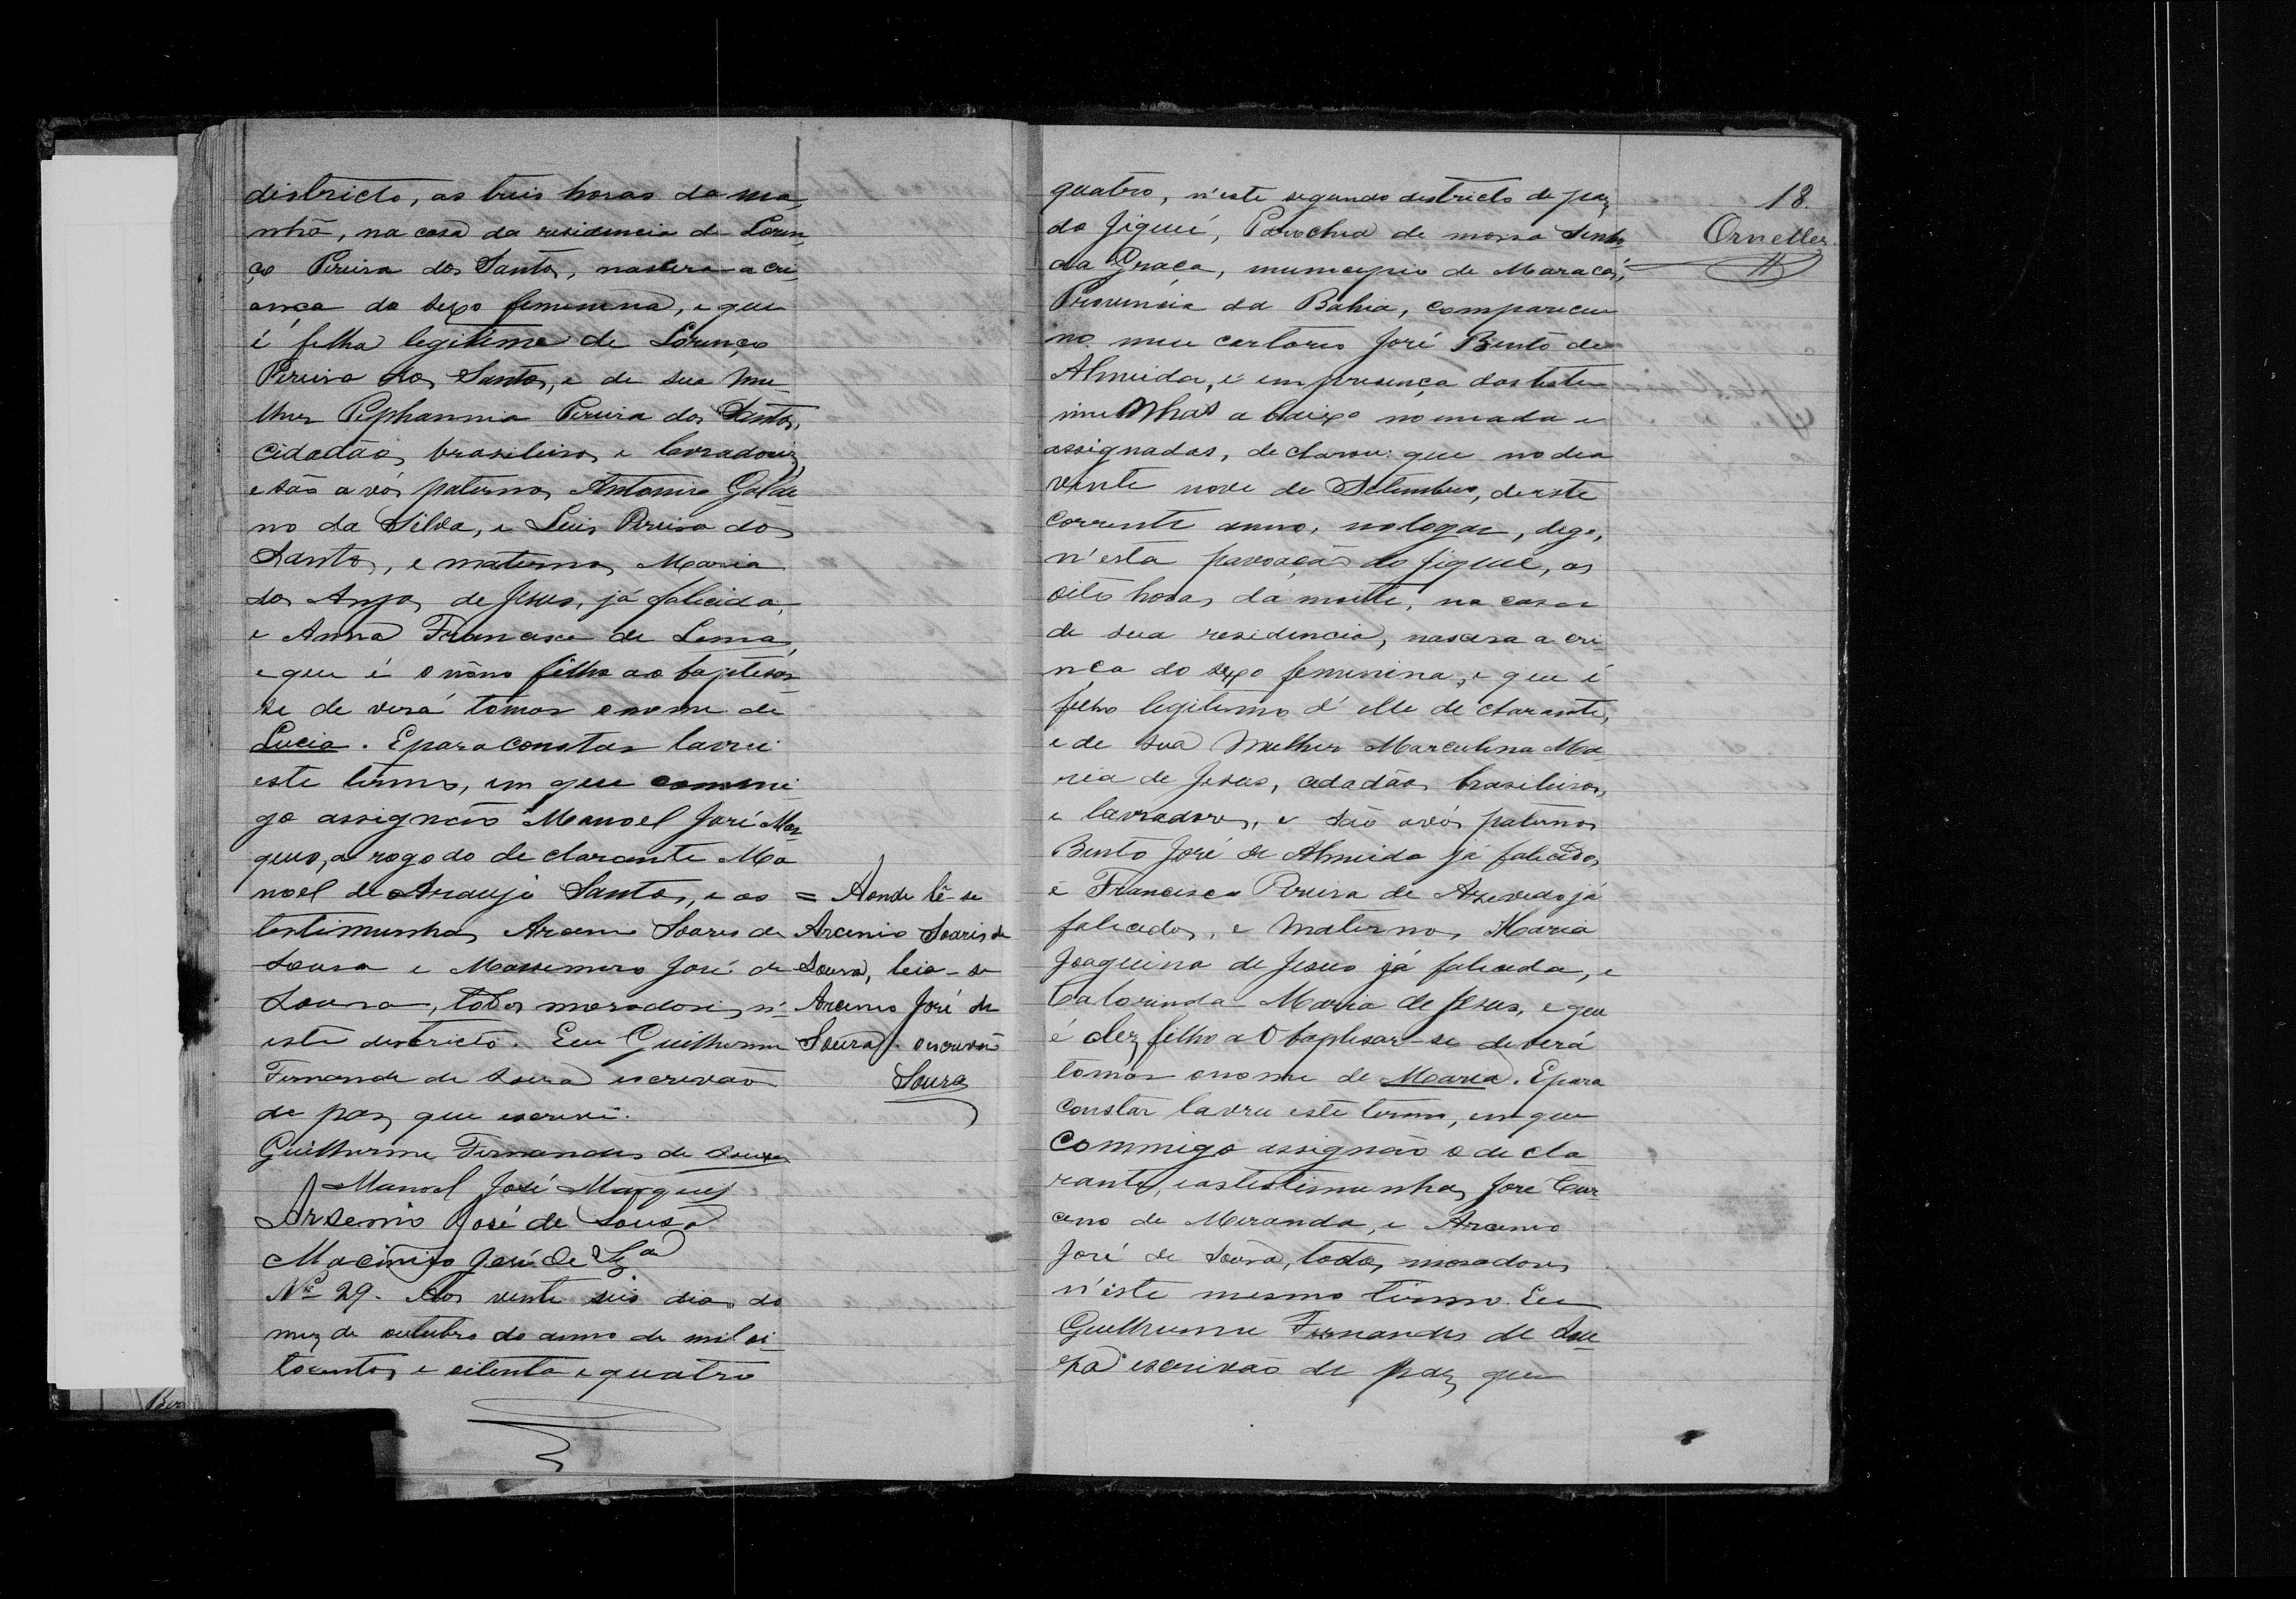 districto, as treis horas da ma-
nhã, na casa da residencia de Loren-
ço Pereira dos Santos, nascera a cri-
ança do sexo feminina, e que
é filha legitima de Lorenço
Pereira dos Santos, e de sua mu-
lher Piphannia Pereira dos Santos,
cidadãos brasileiros e lavradores,
e são avós paternos Antonio Galde-
no da Silva, e Luis Pereira dos
Santos, e maternos Maria
dos Anjos de Jesus, já falicida,
e Anna Francisca de Lima,
e que é o nôno filho ao baptisar-
se deverá tomar o nome de
Lucia. E para constar lavrei
este termo, em que commi-
go assignão Manoel José Mar-
ques, a rogo do declarante Ma-
noel de Araujo Santos, e as
testimunhas Arcenio Soares de
Sousa e Massemiro José de
Sousa, todos moradores n'-
este districto. Eu Guilherme
Fernande de Sousa escrivão
de paz que escrevi.
Guilherme Fernandes de Sousa
Manoel José Marques
Arsenio José de Sousa
Macimiro José de Sza
Nº 29. Aos vente seis dias do
mez de outubro do anno de mil oi-
tocentos e oitenta e quatro
= Aonde lê-se
Arcenio Soares de
Sousa, leia-se
Arcenio José de
Sousa. O escrivão
Sousa
18.
Ornellez
quatro, n'este segundo destricto de paz
do Jiquié, Parochia de nossa Senho
da Graça, municipio de Maracás,
Provincia da Bahia, compareceu
no meu cartorio José Bento de
Almeida, e em presença das teste-
munhas abaixo nomeada e
assignadas, declarou: que no dia
vinte nove de Setembro, deste
corrente anno, no logar, digo,
n'esta povoação do Jiquié, as
oito horas da noite, na casa
de sua residencia, nascera a cri-
nça do sexo feminina, e que é
filho legitimo d'elle declarante,
e de sua mulher Marculina Ma-
ria de Jesus, cidadãos brasileiros,
e lavradores, e são avós paternos
Bento José de Almeida já falicido,
e Francisca Pereira de Asevedo já
falicidos, e maternos Maria
Joaquina de Jesus já falicida, e
Calorinda Maria de Jesus, e que
é dez filho ao baptisar-se deverá
tomar o nome de Maria. E para
constar lavrei este termo, em que
commigo assignão o decla-
rante, e as testimunhas José Cur-
cino de Meranda, e Arcenio
José de Sousa, todos moradores
n'este mesmo termo. Eu
Guilherme Fernandes de Sou-
za escrivão de paz que